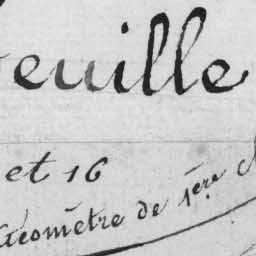 euille
et 16
Géomètre de 1ère